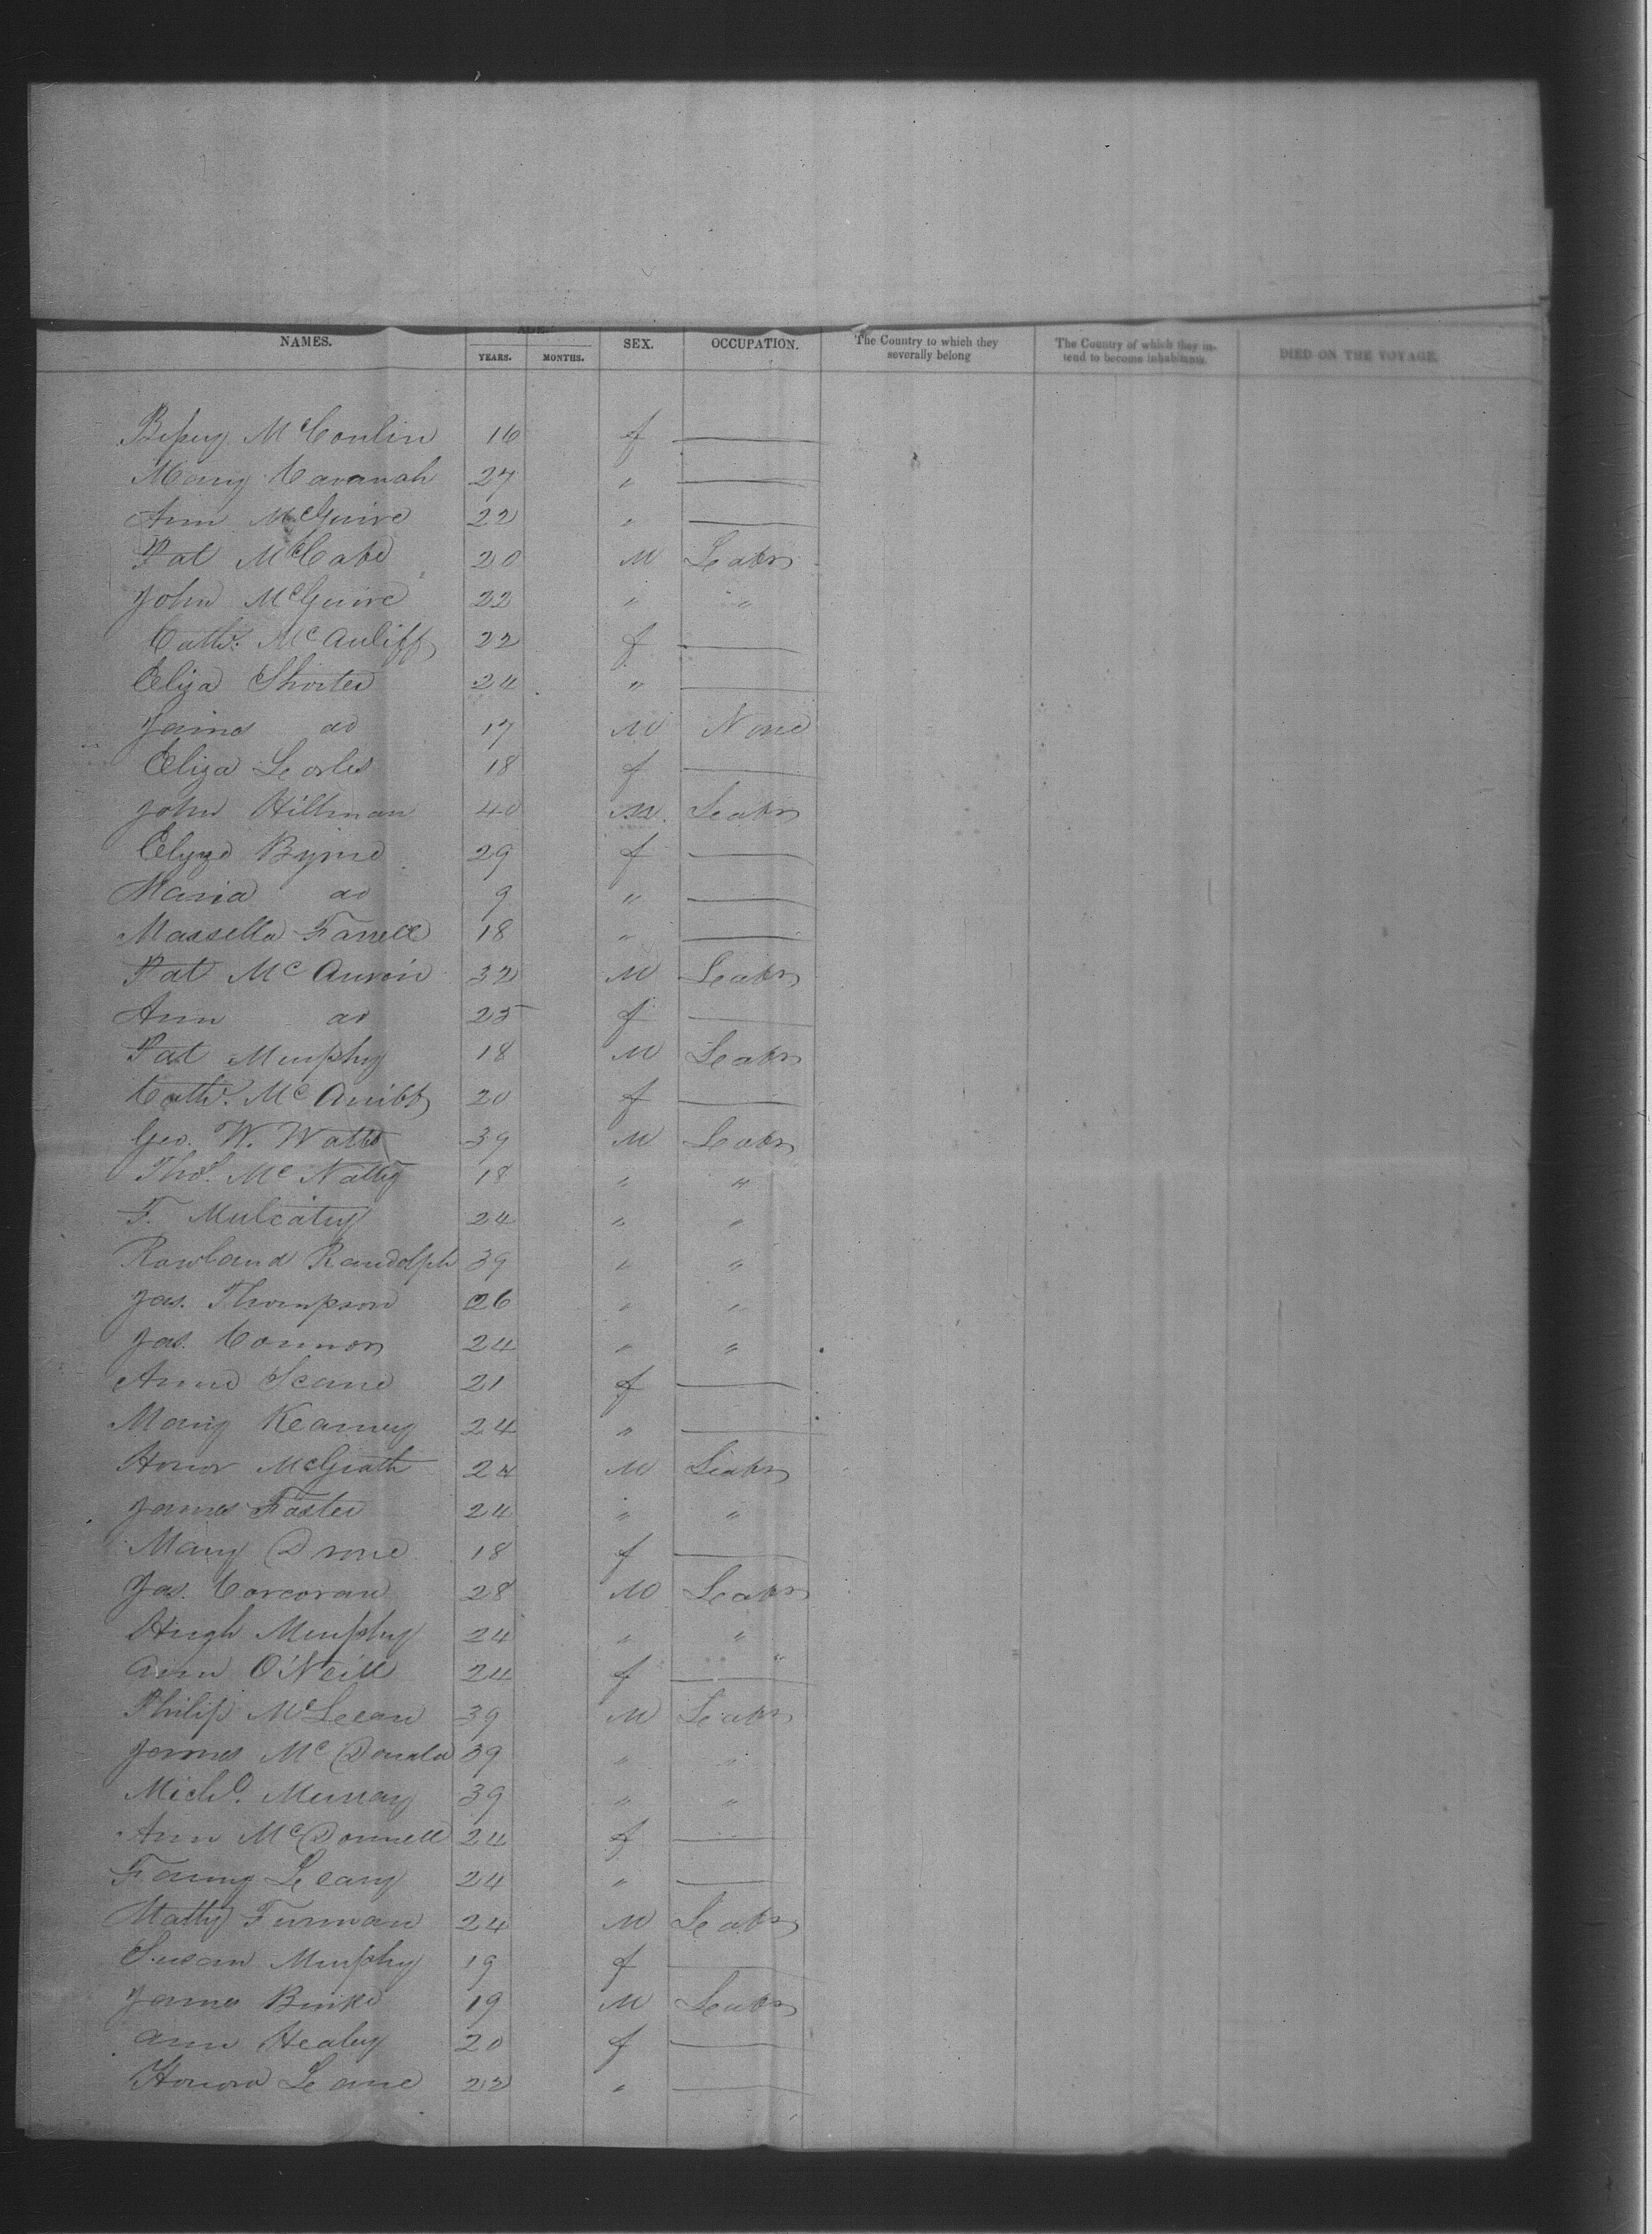 NAMES. AGE. YEARS. MONTHS. SEX. OCCUPATION. The Country to which they severally belong The Country of which they intend to become inhabitants. DIED ON THE VOYAGE.
Bessey McConlin 16 f —
Mary Cavanah 27 " —
Ann McGuire 22 " —
Pat McCabe 20 M Labr
John McGuire 22 " "
Cathe. McAuliff 22 f —
Eliza Shorter 24 " —
James do 17 M None
Eliza 18 f —
John Hillman 40 M. Labr
Byrne 29 f —
Maria do 9 " —
Massella Farrell 18 " —
Pat 32 M Labr
Ann do 25 f —
Pat Murphy 18 M Labr
Cathe. 20 f —
Geo. W. Watts 39 M Labr
Thos. McNatty 18 " "
F. Mulcahy 24 " "
Rowland Randolph 39 " "
Jas. Thompson 26 " "
Jas. Connor 24 " "
Anne Scane 21 f —
Mary Kearney 24 " —
Honor McGrath 24 M Labr
James Foster 24 " "
Mary Drone 18 f —
Jas. Corcoran 28 M Labr
Hugh Murphy 24 " "
Ann O'Neill 24 f —
Philip McLean 39 M Labr
James McDonald 39 " "
Michl. Murray 39 " "
Ann McDonnell 24 f —
Fanny Leary 24 " —
Matty Furman 24 M Labr
Susan Murphy 19 f —
James Burke 19 M Labr
Ann Healey 20 f —
Honora Leane 22 " —